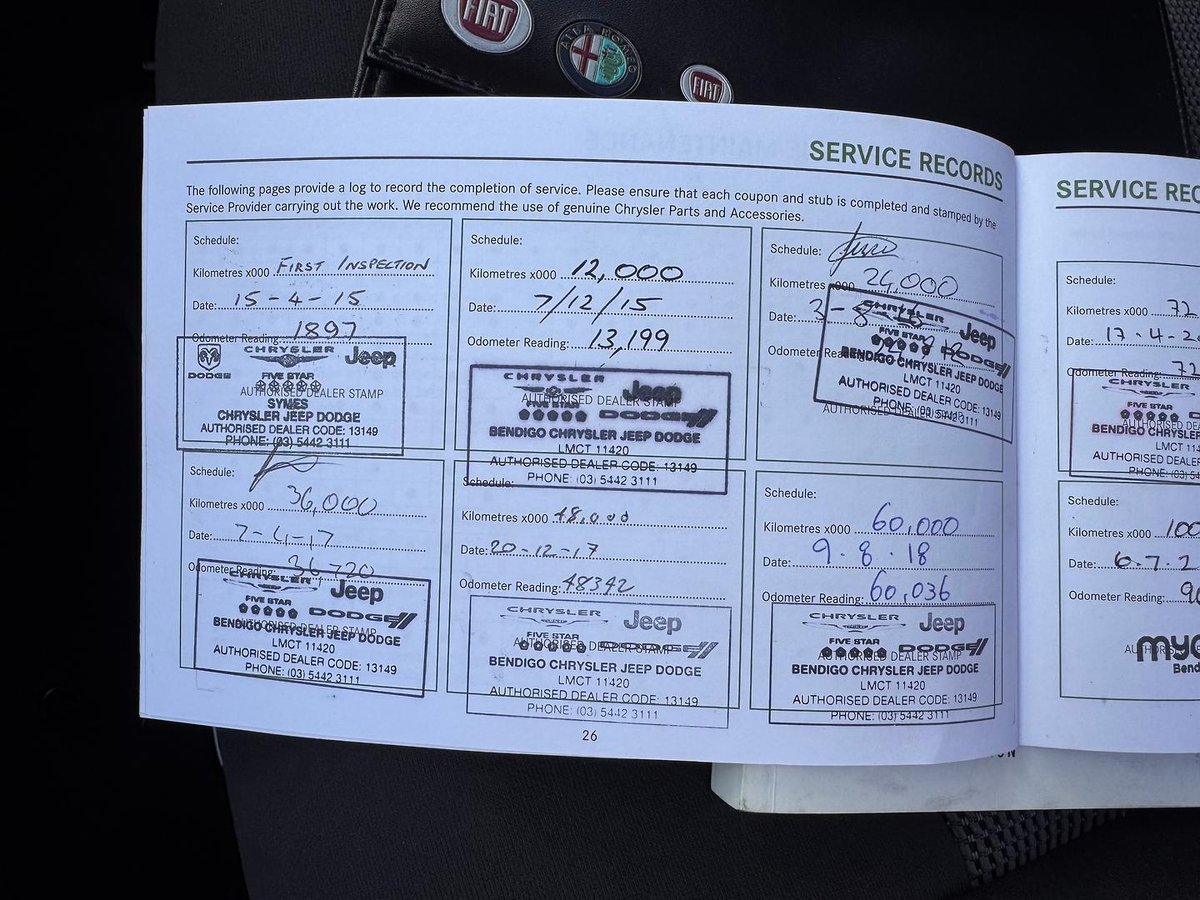 FIAT
ALFA ROMEO
FIAT
SERVICE RECORDS
The following pages provide a log to record the completion of service. Please ensure that each coupon and stub is completed and stamped by the
Service Provider carrying out the work. We recommend the use of genuine Chrysler Parts and Accessories.
Schedule:
Kilometres x000 FIRST INSPECTION
Date: 15-4-15
Odometer Reading: 1897
CHRYSLER Jeep
DODGE FIVE STAR
AUTHORISED DEALER STAMP
SYMES
CHRYSLER JEEP DODGE
AUTHORISED DEALER CODE: 13149
PHONE: (03) 5442 3111
Schedule:
Kilometres x000 12,000
Date: 7/12/15
Odometer Reading: 13,199
CHRYSLER Jeep
AUTHORISED DEALER STAMP
FIVE STAR DODGE
BENDIGO CHRYSLER JEEP DODGE
LMCT 11420
AUTHORISED DEALER CODE: 13149
PHONE: (03) 5442 3111
Schedule:
Kilometres x000 24,000
Date: 3-8-
Odometer
CHRYSLER Jeep
FIVE STAR DODGE
BENDIGO CHRYSLER JEEP DODGE
LMCT 11420
AUTHORISED DEALER CODE: 13149
PHONE: (03) 5442 3111
Schedule:
Kilometres x000 36,000
Date: 7-4-17
Odometer Reading: 36720
CHRYSLER Jeep
FIVE STAR DODGE
AUTHORISED DEALER STAMP
BENDIGO CHRYSLER JEEP DODGE
LMCT 11420
AUTHORISED DEALER CODE: 13149
PHONE: (03) 5442 3111
Schedule:
Kilometres x000 48,000
Date: 20-12-17
Odometer Reading: 48342
CHRYSLER Jeep
AUTHORISED DEALER STAMP
FIVE STAR DODGE
BENDIGO CHRYSLER JEEP DODGE
LMCT 11420
AUTHORISED DEALER CODE: 13149
PHONE: (03) 5442 3111
Schedule:
Kilometres x000 60,000
Date: 9.8.18
Odometer Reading: 60,036
CHRYSLER Jeep
FIVE STAR DODGE
AUTHORISED DEALER STAMP
BENDIGO CHRYSLER JEEP DODGE
LMCT 11420
AUTHORISED DEALER CODE: 13149
PHONE: (03) 5442 3111
26
SERVICE REC
Schedule:
Kilometres x000 72
Date: 17.4.2
Odometer Reading: 72
CHRYSLER
FIVE STAR
BENDIGO CHRYSLER
LMCT 11
AUTHORISED DEA
PHONE: (03) 5
Schedule:
Kilometres x000 100
Date: 6.7.2
Odometer Reading: 9
Bend